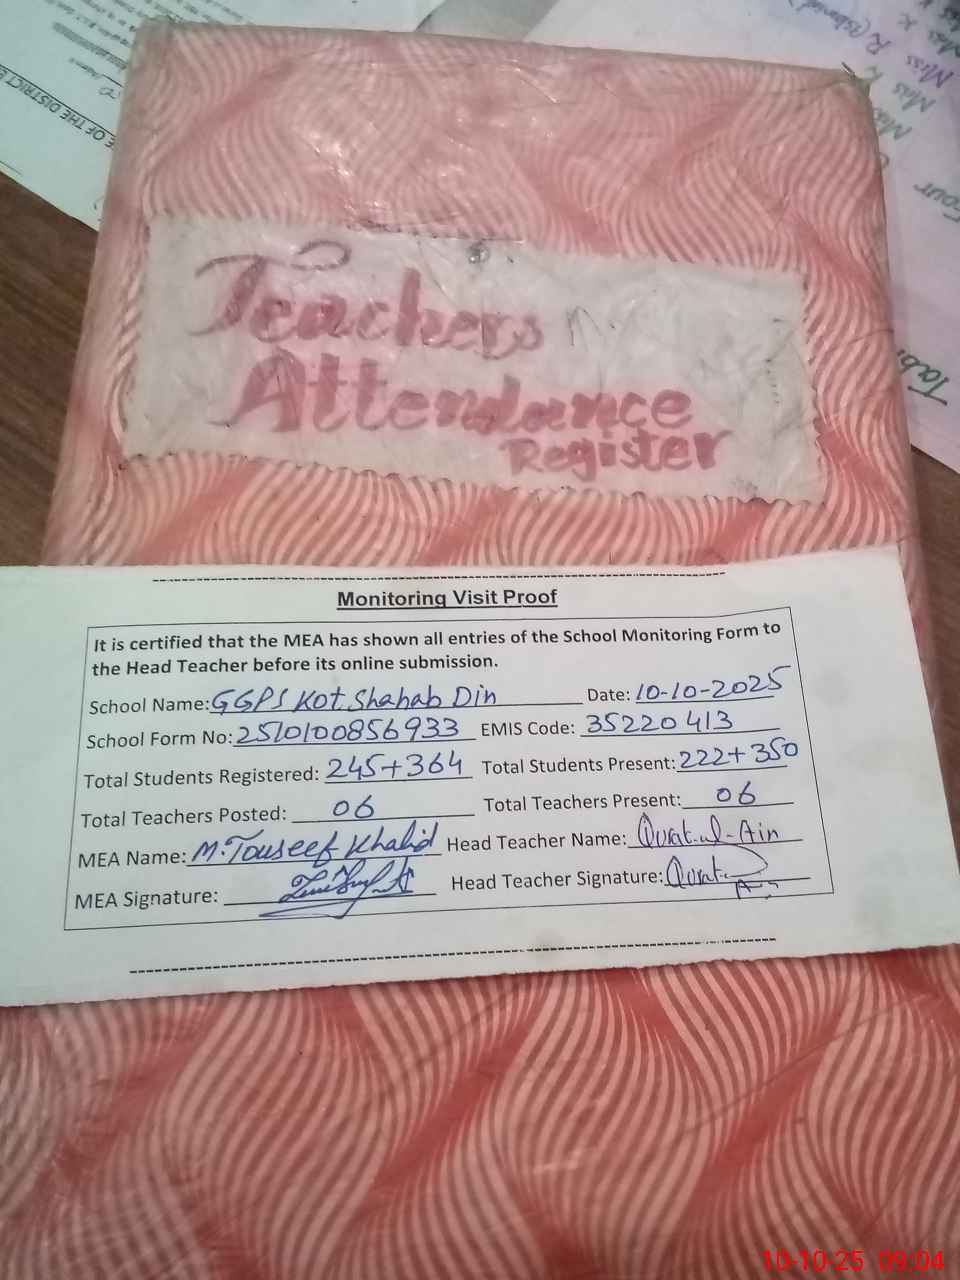 OF THE DISTRICT E
Miss R (Islamiat)
Miss
Miss
Four
Tab
Teachers
Attendance
Register
Monitoring Visit Proof
It is certified that the MEA has shown all entries of the School Monitoring Form to
the Head Teacher before its online submission.
School Name: GGPS Kot Shahab Din Date: 10-10-2025
School Form No: 2510100856933 EMIS Code: 35220413
Total Students Registered: 245+364 Total Students Present: 222+350
Total Teachers Posted: 06 Total Teachers Present: 06
MEA Name: M. Touseef Khalid Head Teacher Name: Qurat-ul-Ain
MEA Signature: Head Teacher Signature: Qurat
10-10-25 09:04